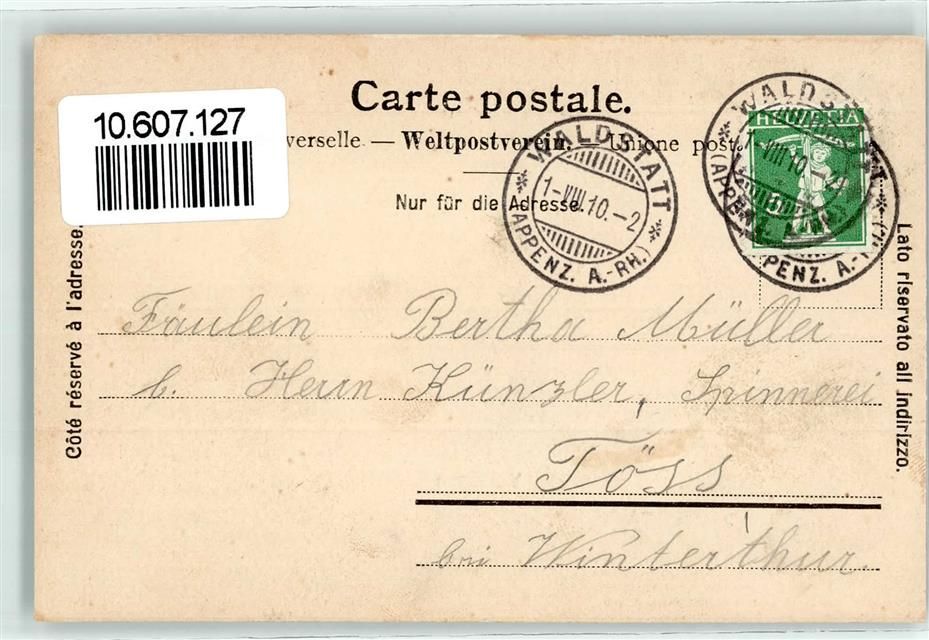 Carte postale.
10.607.127
verselle. — Weltpostverein. — Unione post
Nur für die Adresse.
WALDSTATT
1-VIII.10.-2
(APPENZ. A.-RH.)
WALDSTATT
HELVETIA
VIII 10
(APPENZ. A.
PENZ. A.-
Côté réservé à l'adresse.
Lato riservato all indirizzo.
Fräulein Bertha Müller
b. Herrn Künzler, Spinnerei
Töss
bei Winterthur.